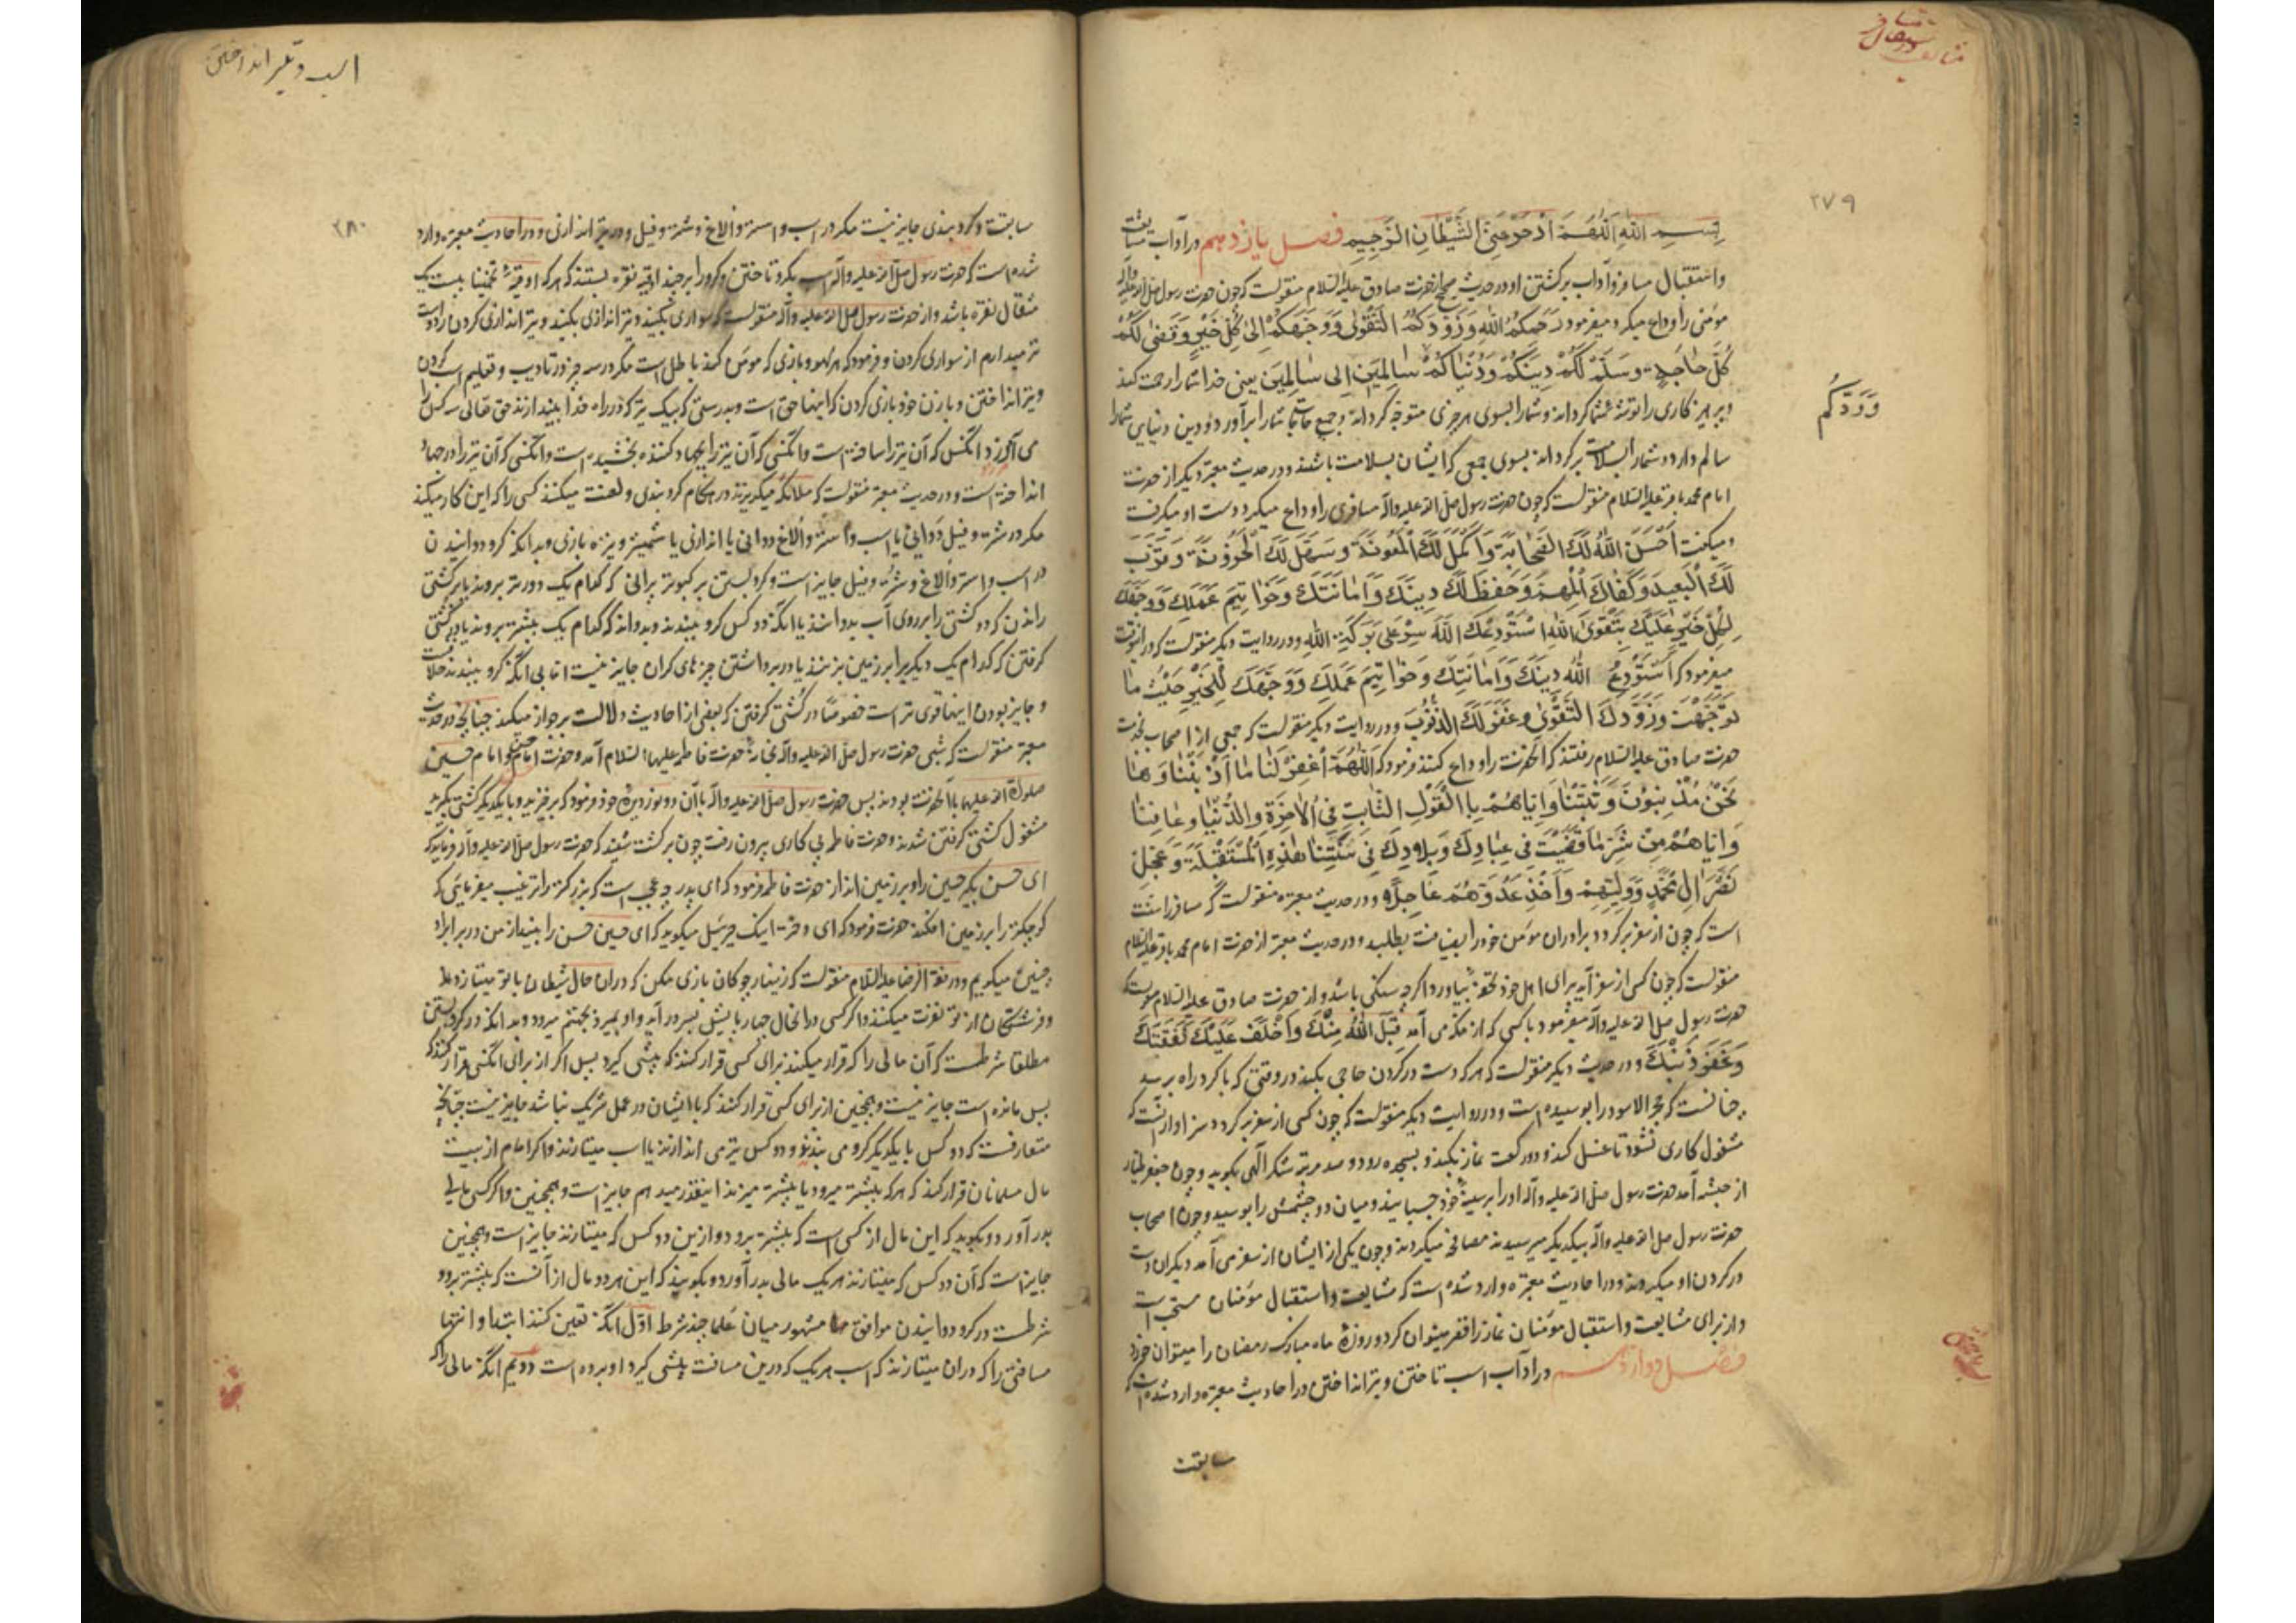 مشایعت مسافر
۲۷۹
بِسْمِ اللهِ اَللّٰهُمَّ ادْحَرْ عَنِّی الشَّیْطَانَ الرَّجِیمَ فصل یازدهم در آداب مشایعت
واستقبال مسافر وآداب برکشتن او در حدیث صحیح از حضرت صادق علیه السلام منقولست که چون حضرت رسول صلی الله علیه وآله
مؤمنی را وداع میکرد میفرمود رَحِمَکُمُ اللهُ وَزَوَّدَکُمُ التَّقْوٰی وَوَجَّهَکُمْ اِلٰی کُلِّ خَیْرٍ وَقَضٰی لَکُمْ
کُلَّ حَاجَةٍ وَسَلَّمَ لَکُمْ دِینَکُمْ وَدُنْیَاکُمْ سَالِمِینَ اِلٰی سَالِمِینَ یعنی خدا شما را رحمت کند
وپرهیزکاری را توشه شما کرداند وشما را بسوی هر چیزی متوجه کرداند وجمیع حاجتهای شما را برآورد ودین ودنیای شما را
سالم دارد وشما را بسلامت برکرداند بسوی جمعی که ایشان بسلامت باشند ودر حدیث معتبر دیکر از حضرت
امام محمد باقر علیه السلام منقولست که چون حضرت رسول صلی الله علیه وآله مسافری را وداع میکرد دست او میکرفت
ومیکفت اَحْسَنَ اللهُ لَکَ الصَّحَابَةَ وَاَکْمَلَ لَکَ الْمَعُونَةَ وَسَهَّلَ لَکَ الْحُزُونَةَ وَقَرَّبَ
لَکَ الْبَعِیدَ وَکَفَاکَ الْمُهِمَّ وَحَفِظَ لَکَ دِینَکَ وَاَمَانَتَکَ وَخَوَاتِیمَ عَمَلِکَ وَوَجَّهَکَ
لِکُلِّ خَیْرٍ عَلَیْکَ بِتَقْوَی اللهِ اَسْتَوْدِعُکَ اللهَ سِرْ عَلٰی بَرَکَةِ اللهِ ودر روایت دیکر منقولست که در آنوقت
میفرمود که اَسْتَوْدِعُ اللهَ دِینَکَ وَاَمَانَتَکَ وَخَوَاتِیمَ عَمَلِکَ وَوَجَّهَکَ لِلْخَیْرِ حَیْثُ مَا
تَوَجَّهْتَ وَزَوَّدَکَ التَّقْوٰی وَغَفَرَ لَکَ الذُّنُوبَ ودر روایت دیکر منقولست که جمعی از اصحاب بخدمت
حضرت صادق علیه السلام رفتند که آنحضرت را وداع کنند فرمود که اَللّٰهُمَّ اغْفِرْ لَنَا مَا اَذْنَبْنَا وَمَا
نَحْنُ مُذْنِبُونَ وَثَبِّتْنَا وَاِیَّاهُمْ بِالْقَوْلِ الثَّابِتِ فِی الْاٰخِرَةِ وَالدُّنْیَا وَعَافِنَا
وَاِیَّاهُمْ مِنْ شَرِّ مَا قَضَیْتَ فِی عِبَادِکَ وَبِلَادِکَ فِی سَنَتِنَا هٰذِهِ الْمُسْتَقْبَلَةِ وَعَجِّلْ
نَصْرَ اٰلِ مُحَمَّدٍ وَوَلِیِّهِمْ وَاَخْذِ عَدُوَّهُمْ عَاجِلًا ودر حدیث معتبر منقولست که مسافر را سنت
است که چون از سفر برکردد برادران مؤمن خود را بضیافت بطلبد ودر حدیث معتبر از حضرت امام محمد باقر علیه السلام
منقولست که چون کسی از سفر آید برای اهل خود تحفه بیاورد اکرچه سنکی باشد واز حضرت صادق علیه السلام منقولست که
حضرت رسول صلی الله علیه وآله میفرمود با کسی که از مکه می آمد قَبِلَ اللهُ مِنْکَ وَاَخْلَفَ عَلَیْکَ نَفَقَتَکَ
وَغَفَرَ ذَنْبَکَ ودر حدیث دیکر منقولست که هر که دست در کردن حاجی بکند در وقتی که با کرد راه برسد
چنانست که حجر الاسود را بوسیده است ودر روایت دیکر منقولست که چون کسی از سفر برکردد سزاوار آنست که
مشغول کاری نشود تا غسل کند ودو رکعت نماز بکند وبسجده رود وصد مرتبه شکر الهی بکوید وچون جعفر طیار
از حبشه آمد حضرت رسول صلی الله علیه وآله او را بر سینه خود چسپانید ومیان دو چشمش را بوسید وچون اصحاب
حضرت رسول صلی الله علیه وآله بیکدیکر میرسیدند مصافحه میکردند وچون یکی از ایشان از سفر می آمد دیکران دست
در کردن او میکردند ودر احادیث معتبره وارد شده است که مشایعت واستقبال مؤمنان مستحب است
واز برای مشایعت واستقبال مؤمنان نماز را قصر میتوان کرد وروزهٔ ماه مبارک رمضان را میتوان خورد
فصل دوازدهم در آداب اسب تاختن وتیر انداختن در احادیث معتبره وارد شده است که
مسابقت
وَدَّکُم
اسب وتیر انداختن
۲۸۰
مسابقت وکروبندی جایز نیست مکر در اسب واستر والاغ وشتر وفیل ودر تیر اندازی ودر احادیث معتبره وارد
شده است که حضرت رسول صلی الله علیه وآله اسب بکرو تاختن وکرو را بر چند اوقیه نقره بستند که هر که اوقیه تخمینا بیست یک
مثقال نقره باشد واز حضرت رسول صلی الله علیه وآله منقولست که سواری بکنید وتیر اندازی بکنید وتیر اندازی کردن را دوست
تر میدارم از سواری کردن وفرمود که هر لهو وبازی که مومن کند باطل است مکر در سه چیز در تادیب وتعلیم اسب کردن
وتیر انداختن وبا زن خود بازی کردن که اینها حق است وبدرستی که بیک تیر که در راه خدا بیندازند حق تعالی سه کس را
می آمرزد آنکس که آن تیر را ساخته است وانکسی که آن تیر را بجهاد کننده بخشیده است وانکسی که آن تیر را در جهاد
انداخته است ودر حدیث معتبر منقولست که ملائکه میکریزند در هنکام کروبندی ولعنت میکنند کسی را که این کار میکند
مکر در شتر وفیل دوانی یا اسب واستر والاغ دوانی یا تیر اندازی یا شمشیر ونیزه بازی وبدانکه کرو دوانیدن
در اسب واستر والاغ وشتر وفیل جایز است وکرو بستن بر کبوتر پرانی که کدام یک دورتر بروند یا بر کشتی
راندن که دو کشتی را بر روی آب بدوانند یا آنکه دو کس کرو ببندند وبدوانند که کدام یک بیشتر بروند یا در کشتی
کرفتن که کدام یک دیکری را بر زمین بزنند یا در برداشتن چیزهای کران جایز نیست اما بی آنکه کرو ببندند خلافست
وجایز بودن اینها قوی تر است خصوصا در کشتی کرفتن که بعضی از احادیث دلالت بر جواز میکند چنانچه در حدیث
معتبر منقولست که شبی حضرت رسول صلی الله علیه وآله بخانهٔ حضرت فاطمه علیها السلام آمد وحضرت امام حسن و امام حسین
صلوات الله علیهما با آنحضرت بودند پس حضرت رسول صلی الله علیه وآله با آن دو نور دیدهٔ خود فرمود که برخیزید وبا یکدیکر کشتی بکیرید
مشغول کشتی کرفتن شدند وحضرت فاطمه پی کاری بیرون رفت چون برکشت شنید که حضرت رسول صلی الله علیه وآله میفرماید که
ای حسن بکیر حسین را وبر زمین انداز حضرت فاطمه فرمود که ای پدر چه عجب است که بزرکتر را ترغیب میفرمایی که
کوچکتر را بر زمین افکند حضرت فرمود که ای دختر اینک جبرئیل میکوید که ای حسین حسن را بینداز من در برابر او
چنین میکویم ودر فقه الرضا علیه السلام منقولست که زینهار چوکان بازی مکن که در آن حال شیطان با تو میتازد
وفرشتکان از تو نفرت میکنند واکر کسی در آنحال چهارپایش بسر در آید واو بمیرد بجهنم میرود وبدانکه در کرو بستن
مطلقا شرطست که آن مالی را که قرار میکنند برای کسی قرار کنند که پیشی کیرد پس اکر از برای آنکسی قرار کنند که
پس مانده است جایز نیست وهمچنین از برای کسی قرار کنند که با ایشان در عمل شریک نباشد جایز نیست چنانچه
متعارفست که دو کس با یکدیکر کرو می بندند ودو کس تیر می اندازند یا اسب میتازند واکر امام از بیت
مال مسلمانان قرار کند که هر که بیشتر میرود یا بیشتر میزند اینقدر میدهم جایز است وهمچنین واکر کسی مالی
بدر آورد وبکوید که این مال از کسی است که بیشتر برود وازین دو کس که میتازند جایز است وهمچنین
جایز است که آن دو کس که میتازند هر یک مالی بدر آورد وبکویند که این هر دو مال از آنست که بیشتر برود
شرطست در کرو دوانیدن موافق مشهور میان علما چند شرط اول آنکه تعیین کنند ابتدا وانتها
مسافتی را که در آن میتازند که اسب هر یک که درین مسافت پیشی کیرد او برده است دویم آنکه مالی را که